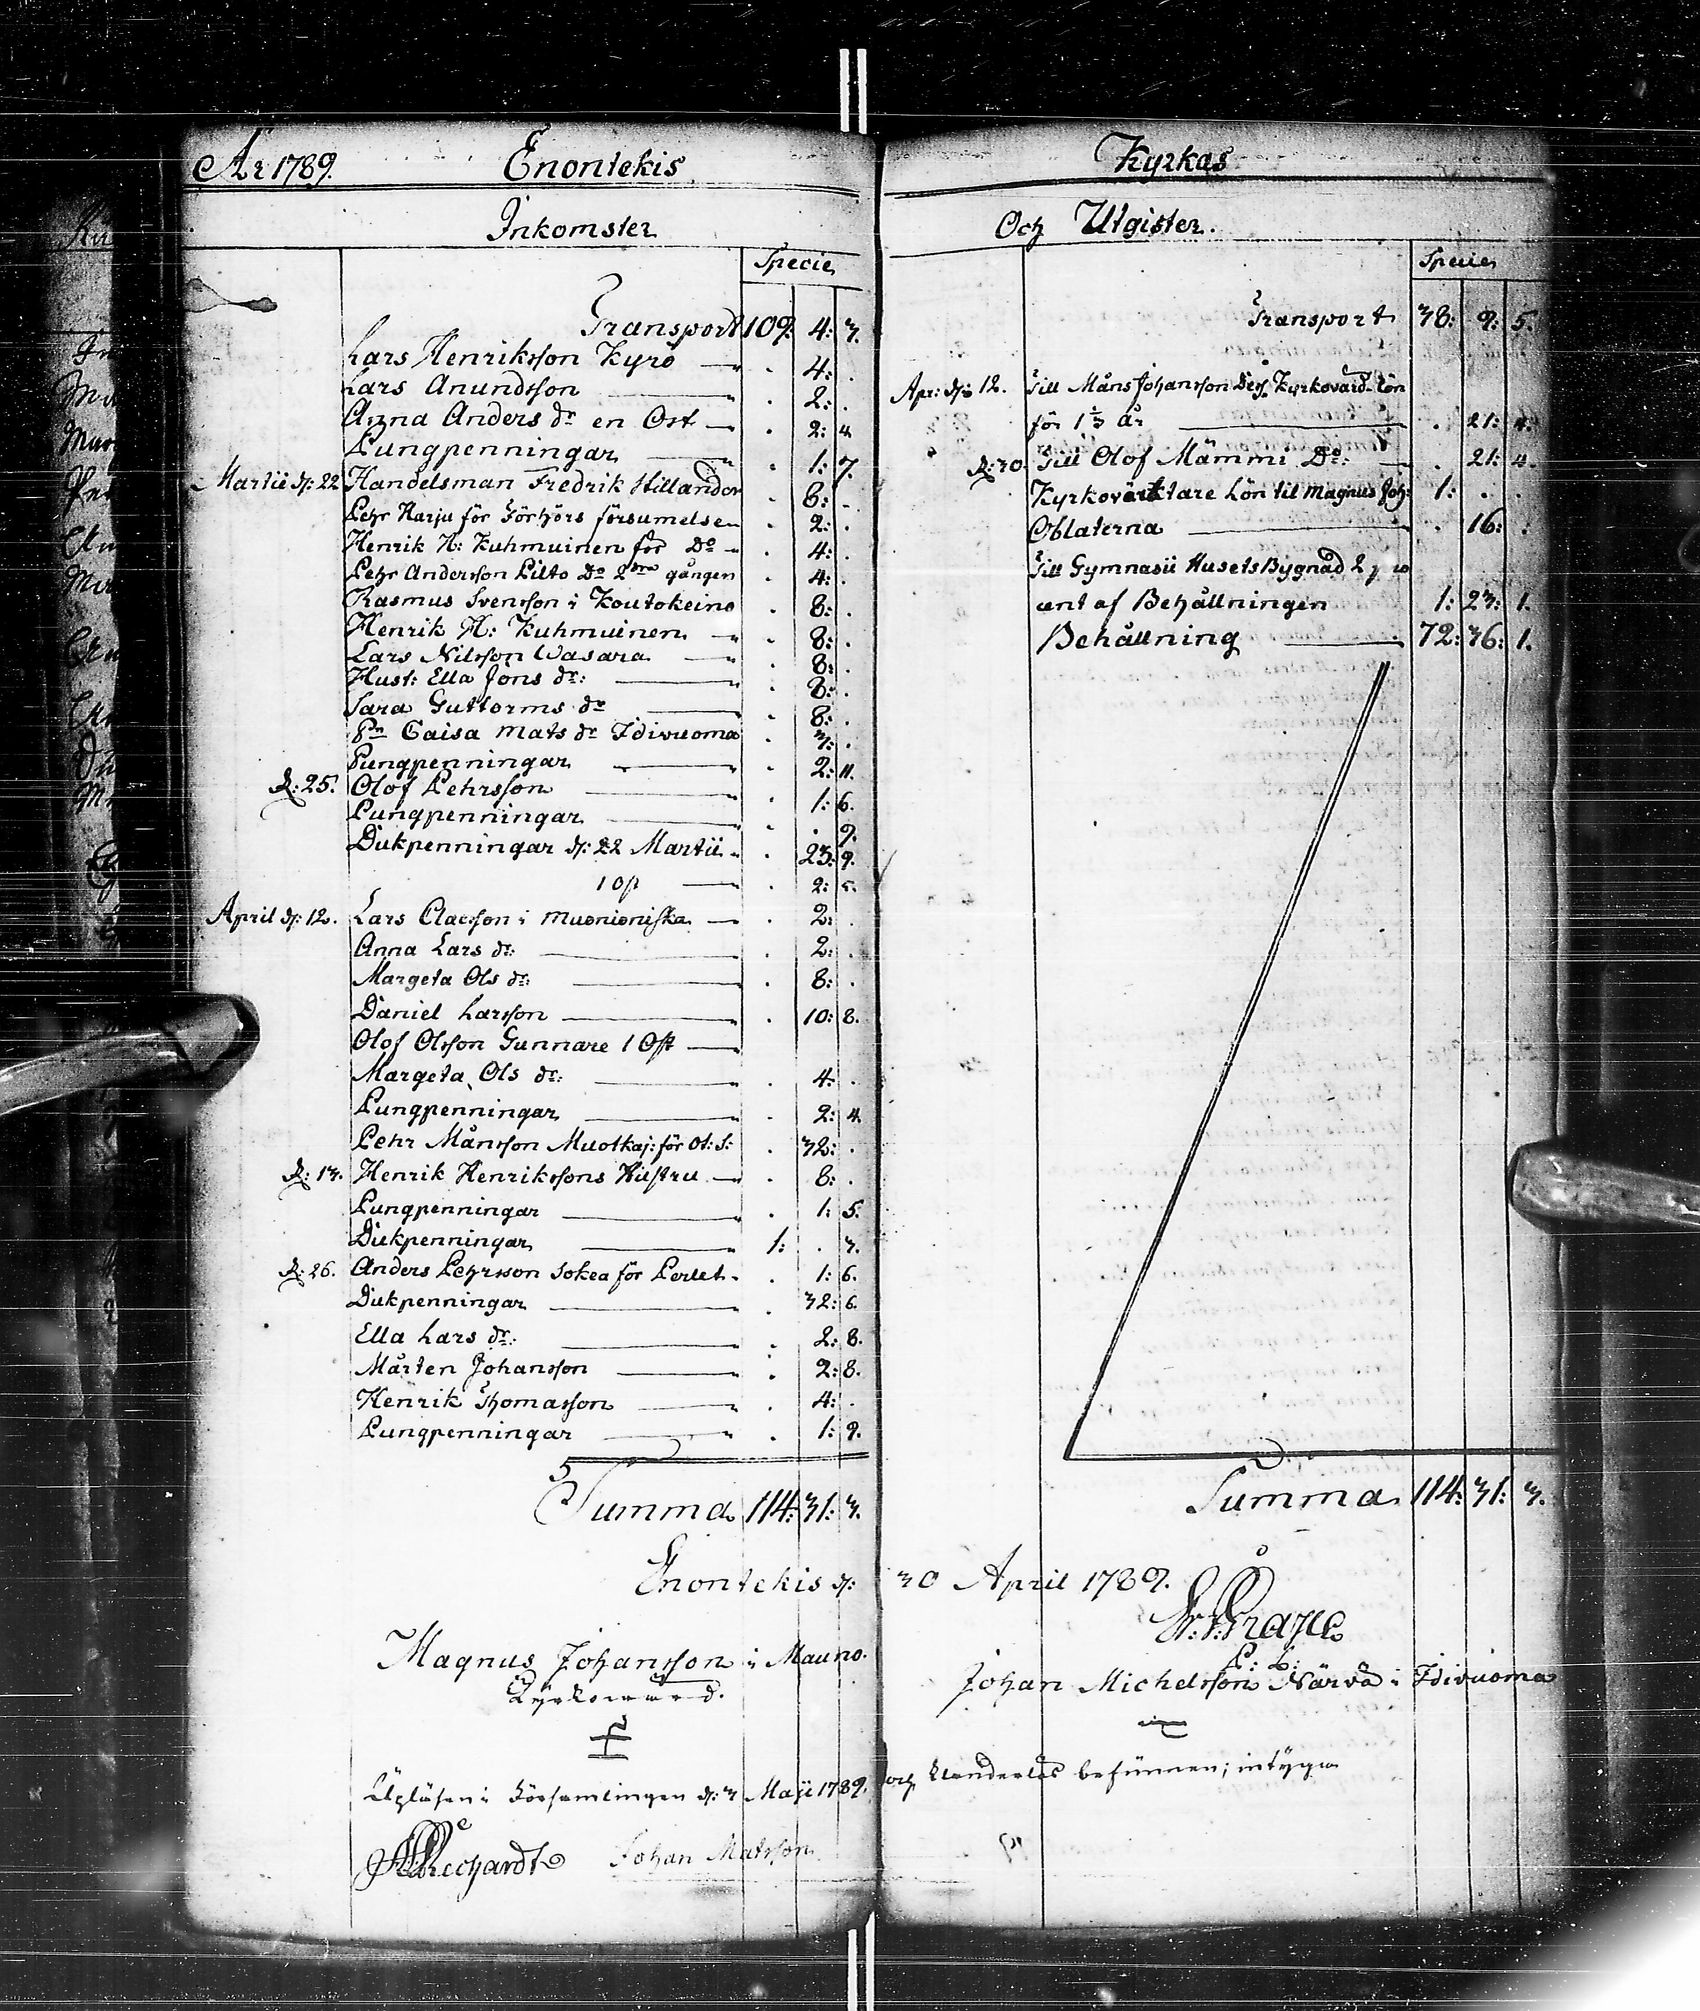 År 1789. Enontekis
Inkomster
Specie
Transport 109: 4: 3.
Lars Henriksson Kyrö — . 4: .
Lars Anundsson — . 2: .
Anna Anders dr en Ost — . 2: 4.
Pungpenningar — . 1: 7.
Martii d: 22 Handelsman Fredrik Hillander . 8: .
Pehr Harju för Förhörs försumelse . 2: .
Henrik H: Kuhmuinen för Do . 4: .
Pehr Andersson Pilto Do 2dra gången . 4: .
Rasmus Svensson i Koutokeino . 8: .
Henrik H: Kuhmuinen — . 8: .
Lars Nilsson Wasara — . 8: .
Hust: Ella Jons dr: — . 8: .
Sara Guttorms dr — . 8: .
Caisa Mats dr Idivuoma . 3: .
Pungpenningar — . 2: 11.
d: 25. Olof Pehrsson — . 1: 6.
Pungpenningar — . . 9.
Dukpenningar d: 22 Martii . 23: 9.
1 Ost — . 2: 5.
April d: 12. Lars Claesson i Muonioniska — . 2: .
Anna Lars dr: — . 2: .
Margeta Ols dr: — . 8: .
Daniel Larsson — . 10: 8.
Olof Olsson Gunnare 1 Ost —
Margeta Ols dr: — . 4: .
Pungpenningar — . 2: 4.
Pehr Månsson Muotkaj: för Ol: S: . 32: .
d: 13. Henrik Henrikssons Hustru — . 8: .
Pungpenningar — . 1: 5.
Dukpenningar — 1: . 3.
d: 26. Anders Pehrsson Sokea för . 1: 6.
Dukpenningar — . 32: 6.
Ella Lars dr: — . 2: 8.
Mårten Johansson — . 2: 8.
Henrik Thomasson — . 4: .
Pungpenningar — . 1: 9.
Summa 114: 31: 3.
Enontekis d:
Magnus Johansson i Mauno.
Kyrkovärd.
Upläsen i Församlingen d: 3 Maji 1789.
Johan Matsson
Kyrkas
Och Utgifter.
Specie
Transport 38: 9: 5.
Apr: d: 12. Till Måns Johansson Dess Kyrkovärd. Lön
för 1 1/3 år — . 21: 4.
d: 30. Till Olof Mämmi Do: — . 21: 4.
Kyrkovärktare Lön til Magnus Joh: 1: . .
Oblaterna — . 16: .
Till Gymnasii Husets Bygnad 2 pro
cent af Behållningen 1: 23: 1.
Behållning — 72: 36: 1.
Summa 114: 31: 3.
30 April 1789.
P: L:
Johan Michelsson Närvä i Idivuoma
och klanderlös befunnen; intyga